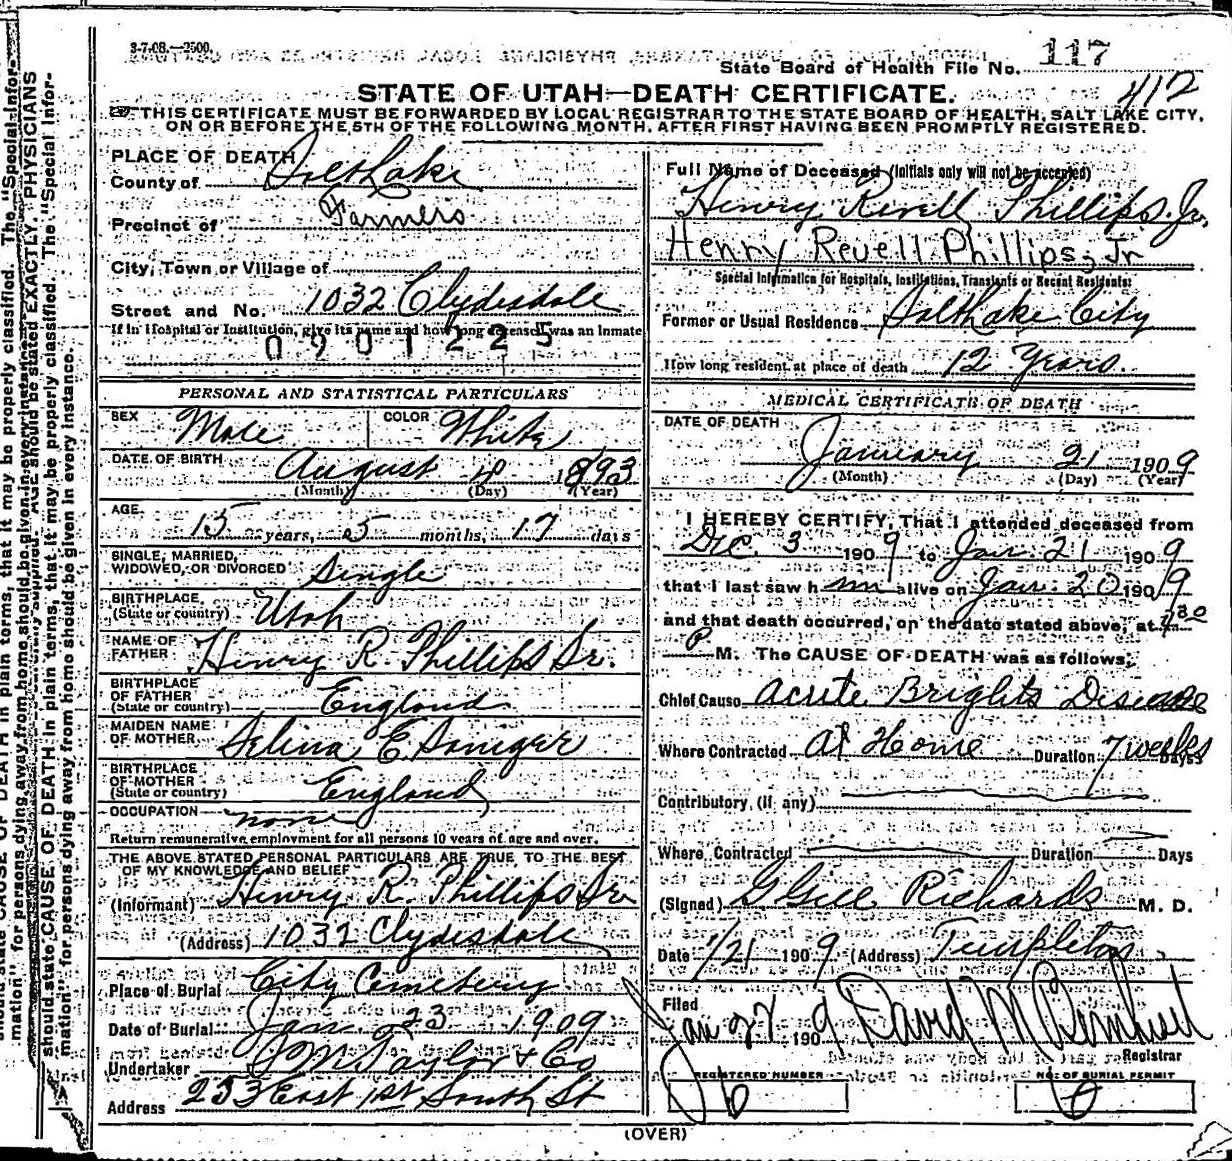 3-7-08.—2500.
State Board of Health File No. 117
412
STATE OF UTAH—DEATH CERTIFICATE.
THIS CERTIFICATE MUST BE FORWARDED BY LOCAL REGISTRAR TO THE STATE BOARD OF HEALTH, SALT LAKE CITY,
ON OR BEFORE THE 5TH OF THE FOLLOWING MONTH, AFTER FIRST HAVING BEEN PROMPTLY REGISTERED.
PLACE OF DEATH
County of Salt Lake
Precinct of Farmers
City, Town or Village of
Street and No. 1032 Clydesdale
If in Hospital or Institution, give its name and how long deceased was an inmate
0901225
PERSONAL AND STATISTICAL PARTICULARS
SEX Male COLOR White
DATE OF BIRTH August 4 1893
(Month) (Day) (Year)
AGE 15 years, 5 months, 17 days
SINGLE, MARRIED,
WIDOWED, OR DIVORCED Single
BIRTHPLACE
(State or country) Utah
NAME OF
FATHER Henry R. Phillips Sr.
BIRTHPLACE
OF FATHER
(State or country) England
MAIDEN NAME
OF MOTHER Selina E.
BIRTHPLACE
OF MOTHER
(State or country) England
OCCUPATION none
Return remunerative employment for all persons 10 years of age and over.
THE ABOVE STATED PERSONAL PARTICULARS ARE TRUE TO THE BEST
OF MY KNOWLEDGE AND BELIEF
(Informant) Henry R. Phillips Sr
(Address) 1032 Clydesdale
Place of Burial City Cemetery
Date of Burial Jan. 23 1909
Undertaker Taylor & Co
Address 253 East 1st South St
Full Name of Deceased (Initials only will not be accepted)
Henry Revell Phillips. Jr.
Henry Revell Phillips, Jr
Special Information for Hospitals, Institutions, Transients or Recent Residents:
Former or Usual Residence Salt Lake City
How long resident at place of death 12 Years.
MEDICAL CERTIFICATE OF DEATH
DATE OF DEATH
January 21 1909
(Month) (Day) (Year)
I HEREBY CERTIFY, That I attended deceased from
Dec. 3 1909 to Jan. 21 1909
that I last saw h im alive on Jan. 20 1909
and that death occurred, on the date stated above, at
P M. The CAUSE OF DEATH was as follows:
Chief Cause Acute Brights Disease
Where Contracted At Home Duration 7 weeks Days
Contributory, (if any)
Where Contracted Duration Days
(Signed) G. Gill Richards M. D.
Date 1/21 1909 (Address) Templeton
Filed
Jan 22 1909 David M
Registrar
REGISTERED NUMBER NO. OF BURIAL PERMIT
(OVER)